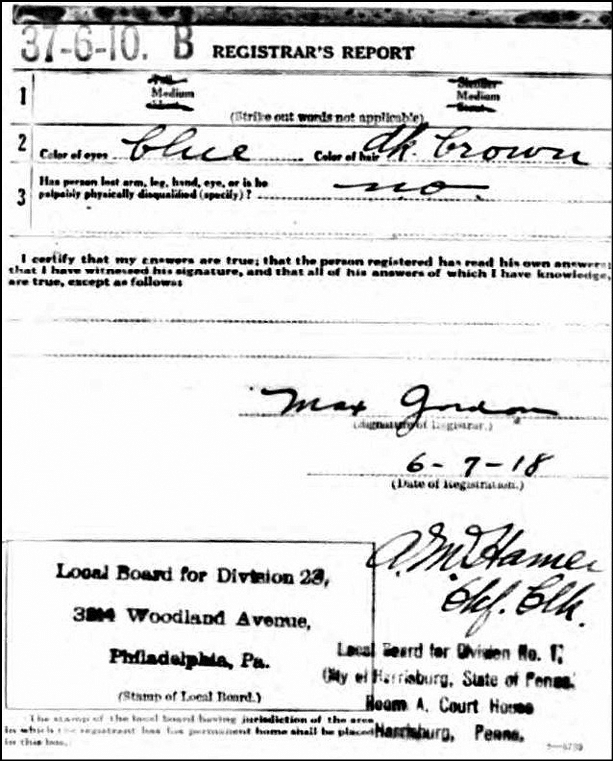 37-6-10. B REGISTRAR'S REPORT
1 Tall Medium Short Slender Medium Stout
(Strike out words not applicable)
2 Color of eyes blue Color of hair dk. brown
3 Has person lost arm, leg, hand, eye, or is he
palpably physically disqualified (specify)? no.
I certify that my answers are true; that the person registered has read his own answers;
that I have witnessed his signature, and that all of his answers of which I have knowledge,
are true, except as follows:
Max Gordon
(Signature of Registrar.)
6-7-18
(Date of Registration.)
Chf. Clk.
Local Board for Division 23,
Woodland Avenue,
Philadelphia, Pa.
(Stamp of Local Board.)
Local Board for Division No. 1,
City of Harrisburg, State of Penna.
Room A, Court House
Harrisburg, Penna.
The stamp of the local board having jurisdiction of the area
in which the registrant has his permanent home shall be placed
in this box.